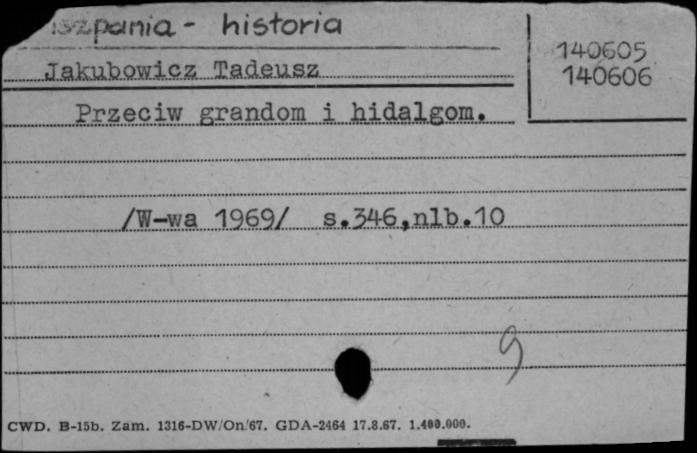 iszpania - historia
140605
Jakubowicz Tadeusz
140606
Przeciw grandom i hidalgom.
/W-wa 1969/ s.346,nlb.10
g
CWD. B-15b. Zam. 1316-DW/On/67. GDA-2464 17.8.67. 1.400.000.